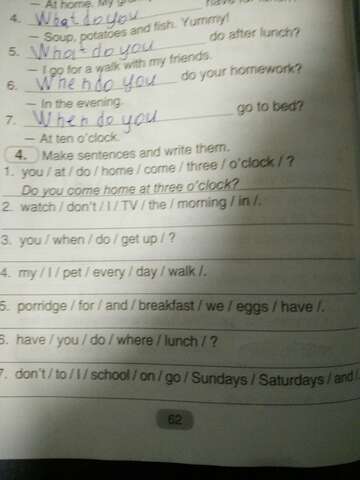 — At home. My
4. What do you have for
— Soup, potatoes and fish. Yummy!
5. What do you do after lunch?
— I go for a walk with my friends.
6. When do you do your homework?
— In the evening.
7. When do you go to bed?
— At ten o'clock.
4. Make sentences and write them.
1. you / at / do / home / come / three / o'clock / ?
Do you come home at three o'clock?
2. watch / don't / I / TV / the / morning / in /.
3. you / when / do / get up / ?
4. my / I / pet / every / day / walk /.
5. porridge / for / and / breakfast / we / eggs / have /.
6. have / you / do / where / lunch / ?
7. don't / to / I / school / on / go / Sundays / Saturdays / and /
62